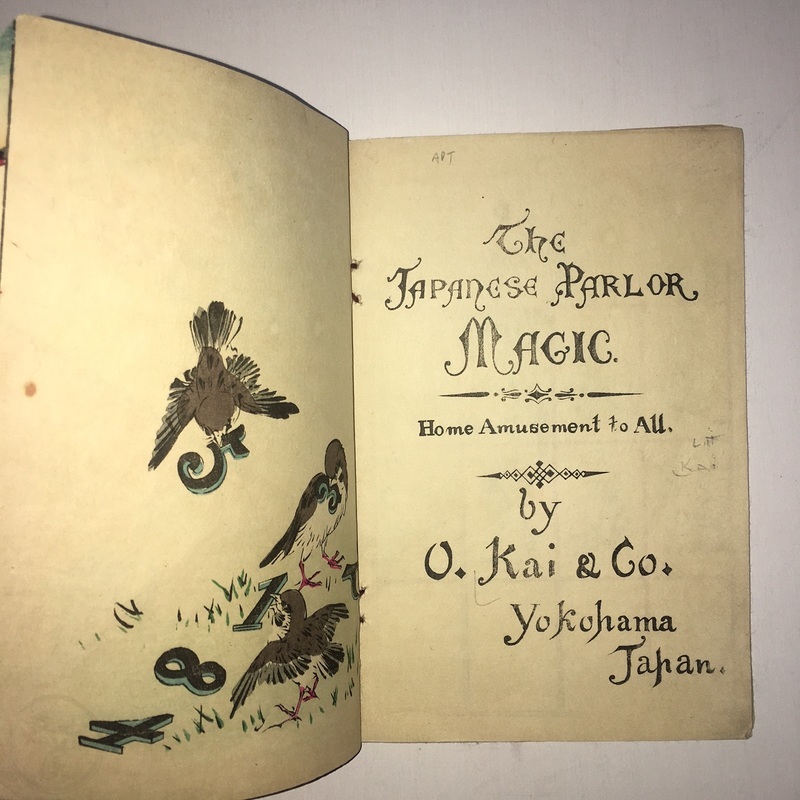 5
8
APT
The
Japanese Parlor
Magic.
Home Amusement to All.
by
O. Kai & Co.
Yokohama
Japan.
Kai